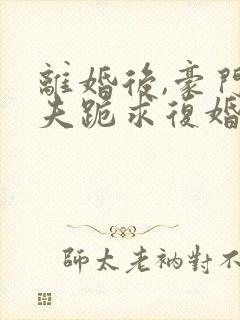 離婚後,豪門
夫跪求復婚
師太老衲對不